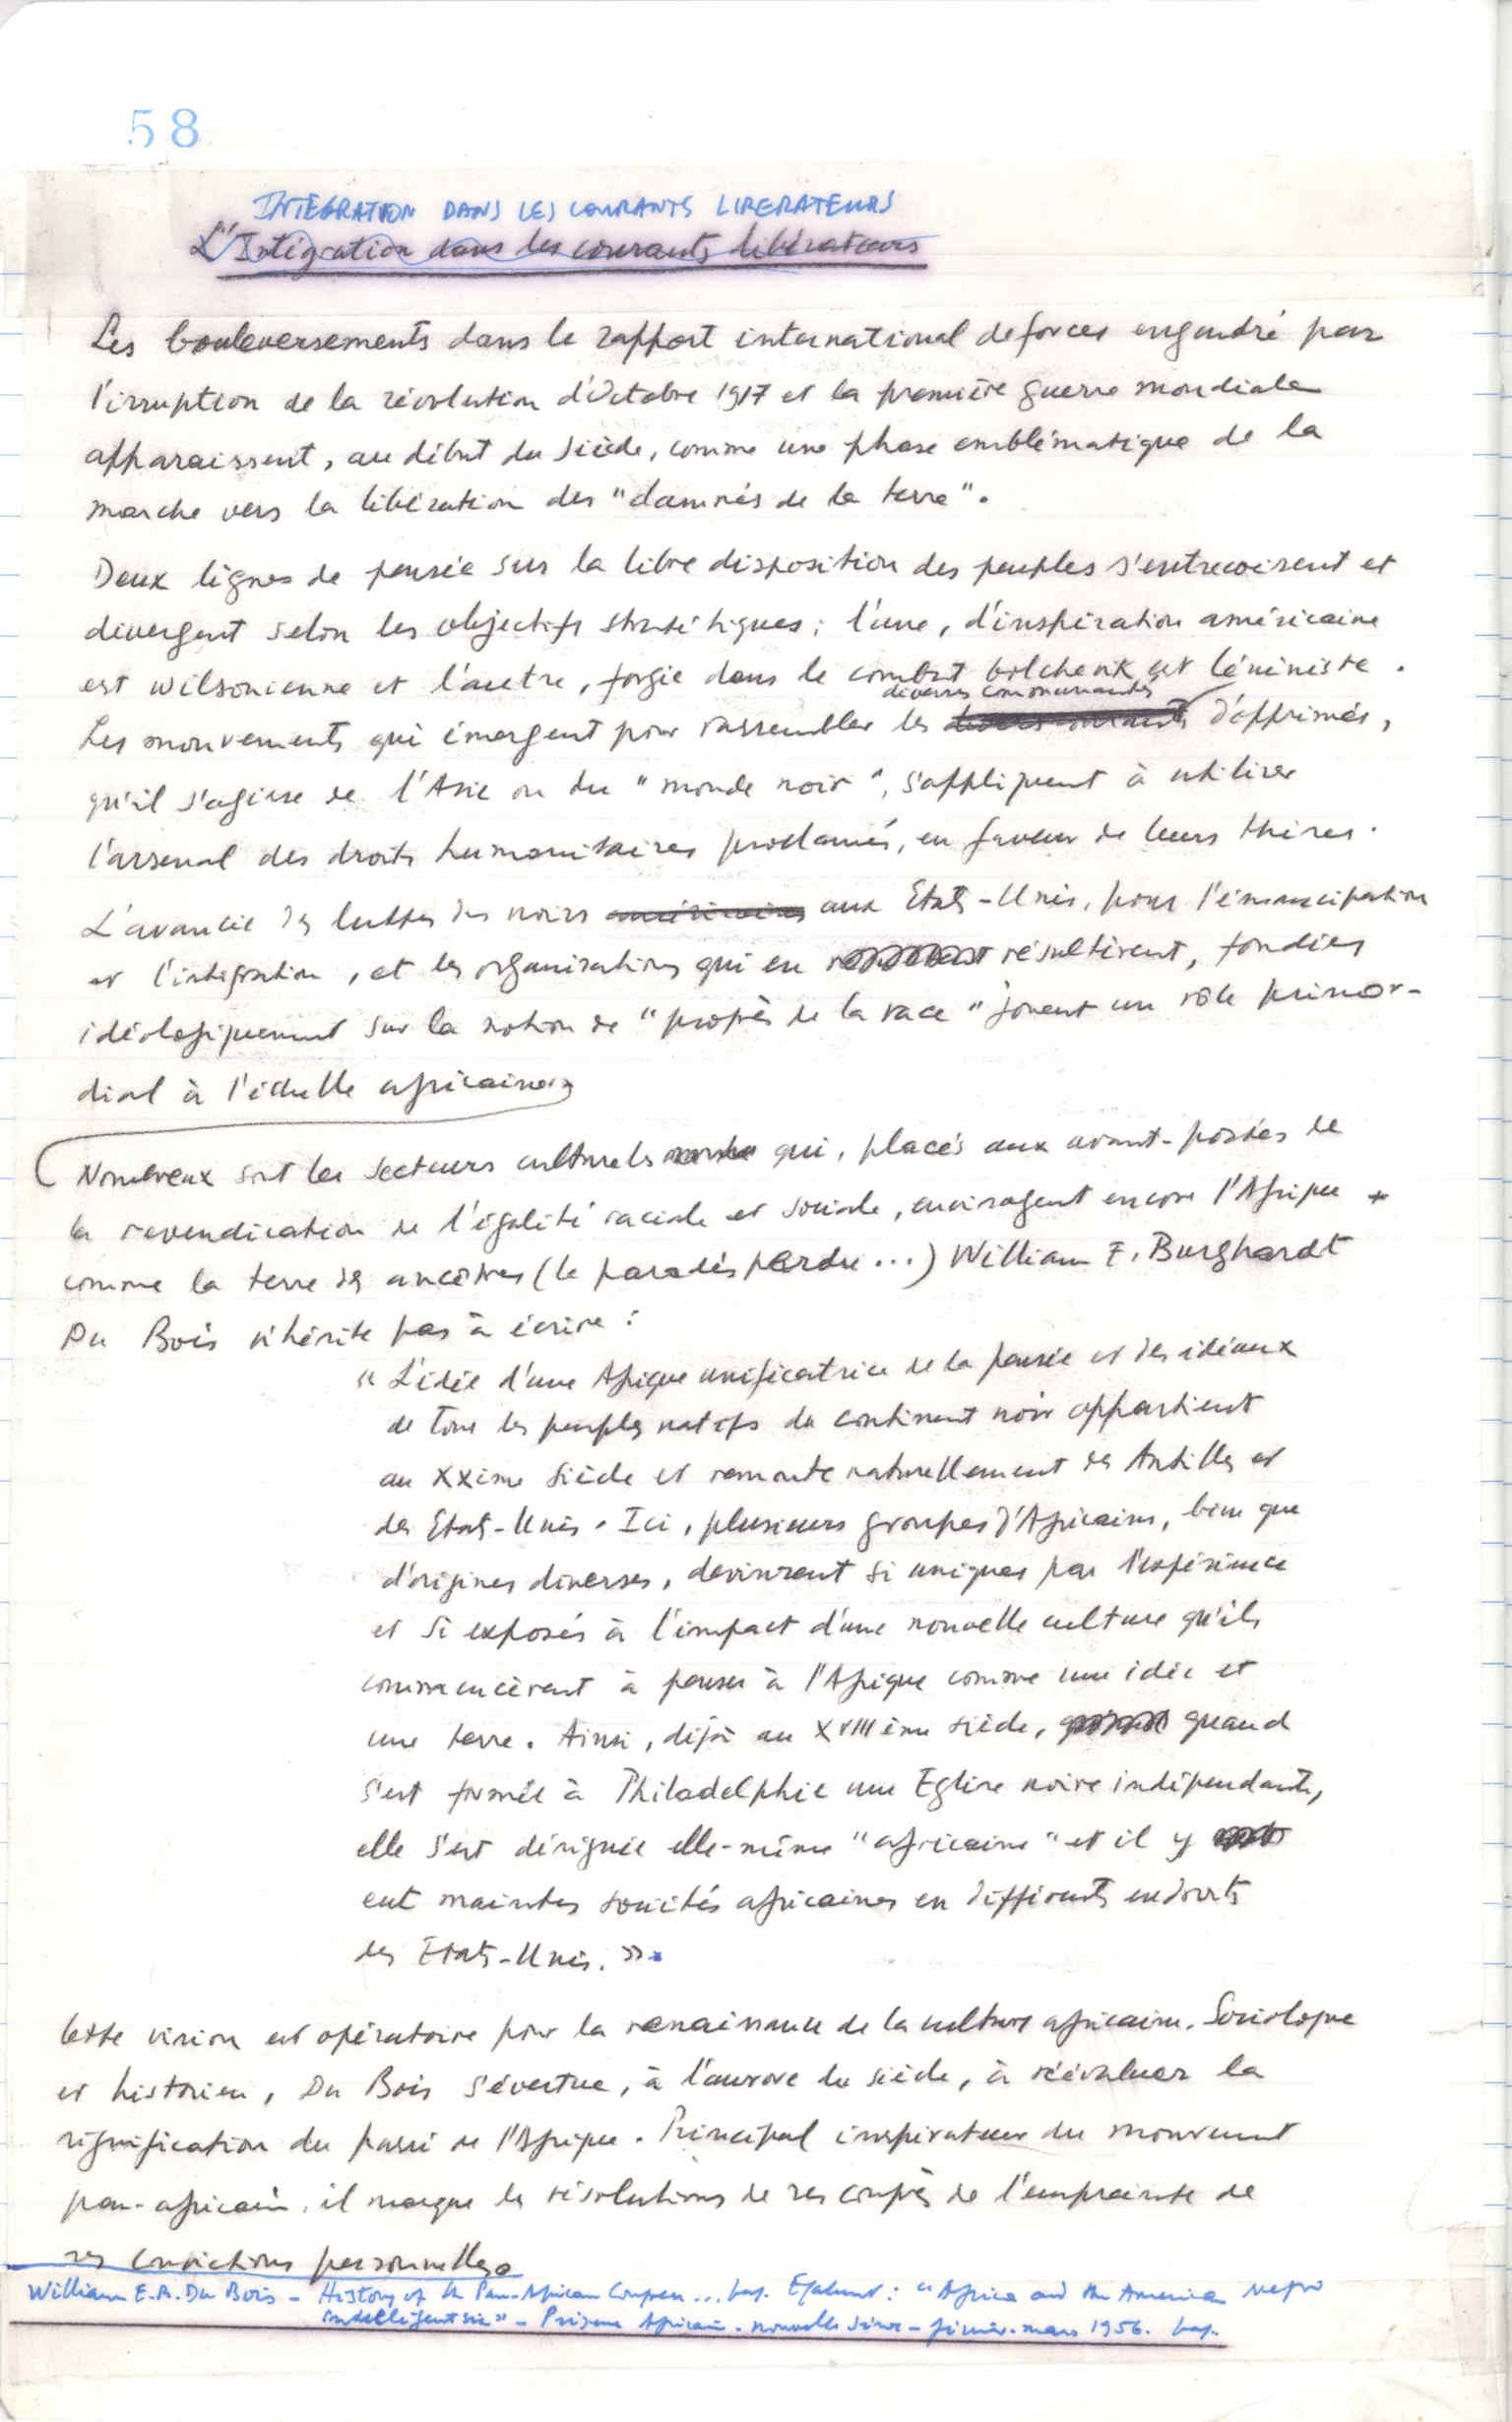 58
INTEGRATION DANS LES COURANTS LIBERATEURS
L'Intégration dans les courants libérateurs
Les bouleversements dans le rapport international de forces engendré par
l'irruption de la révolution d'Octobre 1917 et la première guerre mondiale
apparaissent, au début du siècle, comme une phase emblématique de la
marche vers la libération des "damnés de la terre".
Deux lignes de pensée sur la libre disposition des peuples s'entrecroisent et
divergent selon les objectifs stratégiques : l'une, d'inspiration américaine
est wilsonienne et l'autre, forgée dans le combat bolchevik est léniniste.
diverses communautés
Les mouvements qui émergent pour rassembler les d'opprimés,
qu'il s'agisse de l'Asie ou du "monde noir", s'appliquent à utiliser
l'arsenal des droits humanitaires proclamés, en faveur de leurs thèses.
L'avancée des luttes des noirs américains aux Etats-Unis, pour l'émancipation
et l'intégration, et les organisations qui en résultèrent, fondées
idéologiquement sur la notion de "progrès de la race" jouent un rôle primor-
dial à l'échelle africaine.
Nombreux sont les secteurs culturels qui, placés aux avant-postes de
la revendication de l'égalité raciale et sociale, envisagent encore l'Afrique *
comme la terre des ancêtres (le paradis perdu...) William E. Burghardt
Du Bois n'hésite pas à écrire :
"L'idée d'une Afrique unificatrice de la pensée et des idéaux
de tous les peuples natifs du continent noir appartient
au XXème siècle et remonte naturellement des Antilles et
des Etats-Unis. Ici, plusieurs groupes d'Africains, bien que
d'origines diverses, devinrent si uniques par l'expérience
et si exposés à l'impact d'une nouvelle culture qu'ils
commencèrent à penser à l'Afrique comme une idée et
une terre. Ainsi, déjà au XVIIIème siècle, quand
s'est formée à Philadelphie une Eglise noire indépendante,
elle s'est désignée elle-même "africaine" et il y
eut maintes sociétés africaines en différents endroits
des Etats-Unis. ».
Cette vision est opératoire pour la renaissance de la culture africaine. Sociologue
et historien, Du Bois s'évertue, à l'aurore du siècle, à réévaluer la
signification du passé de l'Afrique. Principal inspirateur du mouvement
pan-africain, il marque les résolutions de ses congrès de l'empreinte de
ses convictions personnelles.
William E.B. Du Bois - History of the Pan-African Congress... Egalement : "Africa and the America negro
intelligentsia" - Présence Africaine - nouvelle série - février-mars 1956.